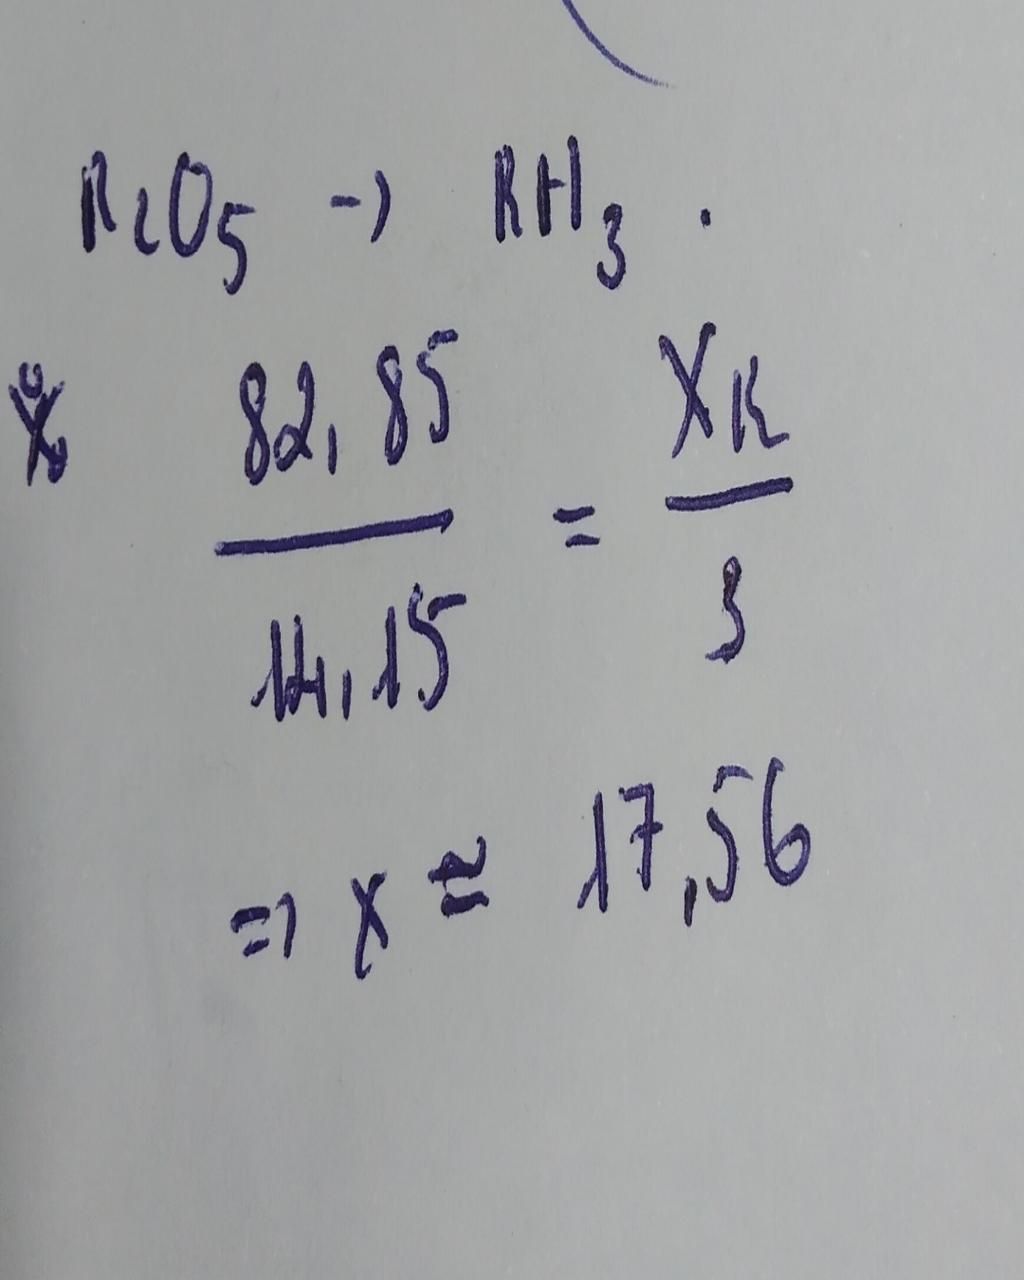 R₂O₅ → RH₃.
82,85 / 14,15 = X_R / 3
⇒ x ≅ 17,56